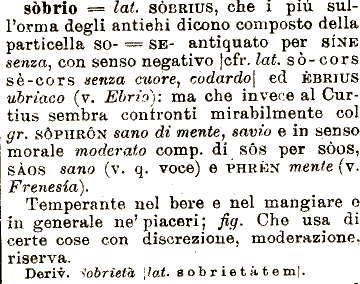 sòbrio = lat. SÒBRIUS, che i più sul-
l'orma degli antichi dicono composto della
particella SO- = SE- antiquato per SÍNE
senza, con senso negativo [cfr. lat. sò-cors
sè-cors senza cuore, codardo] ed ÈBRIUS
ubriaco (v. Ebrio): ma che invece al Cur-
tius sembra confronti mirabilmente col
gr. SÔPHRÔN sano di mente, savio e in senso
morale moderato comp. di sôs per sòos,
SÀOS sano (v. q. voce) e PHRÈN mente (v.
Frenesía).
Temperante nel bere e nel mangiare e
in generale ne' piaceri; fig. Che usa di
certe cose con discrezione, moderazione,
riserva.
Deriv. Sobrietà [lat. sobrietàtem].